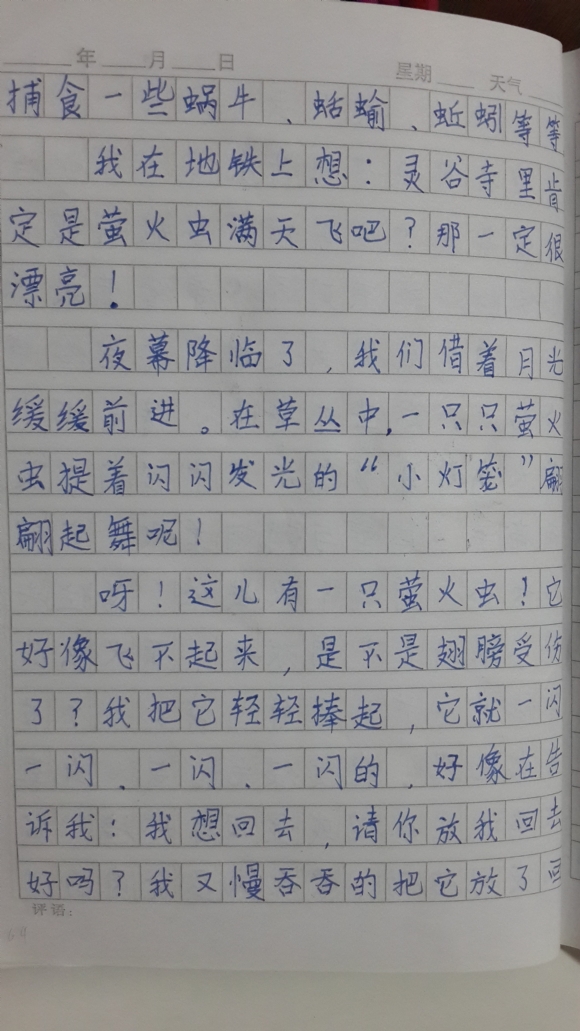 年 月 日 星期 天气
捕食一些蜗牛、蛞蝓、蚯蚓等等
我在地铁上想：灵谷寺里肯
定是萤火虫满天飞吧？那一定很
漂亮！
夜幕降临了，我们借着月光
缓缓前进。在草丛中，一只只萤火
虫提着闪闪发光的“小灯笼”翩
翩起舞呢！
呀！这儿有一只萤火虫！它
好像飞不起来，是不是翅膀受伤
了？我把它轻轻捧起，它就一闪
一闪、一闪、一闪的，好像在告
诉我：我想回去，请你放我回去
好吗？我又慢吞吞的把它放了回
评语：